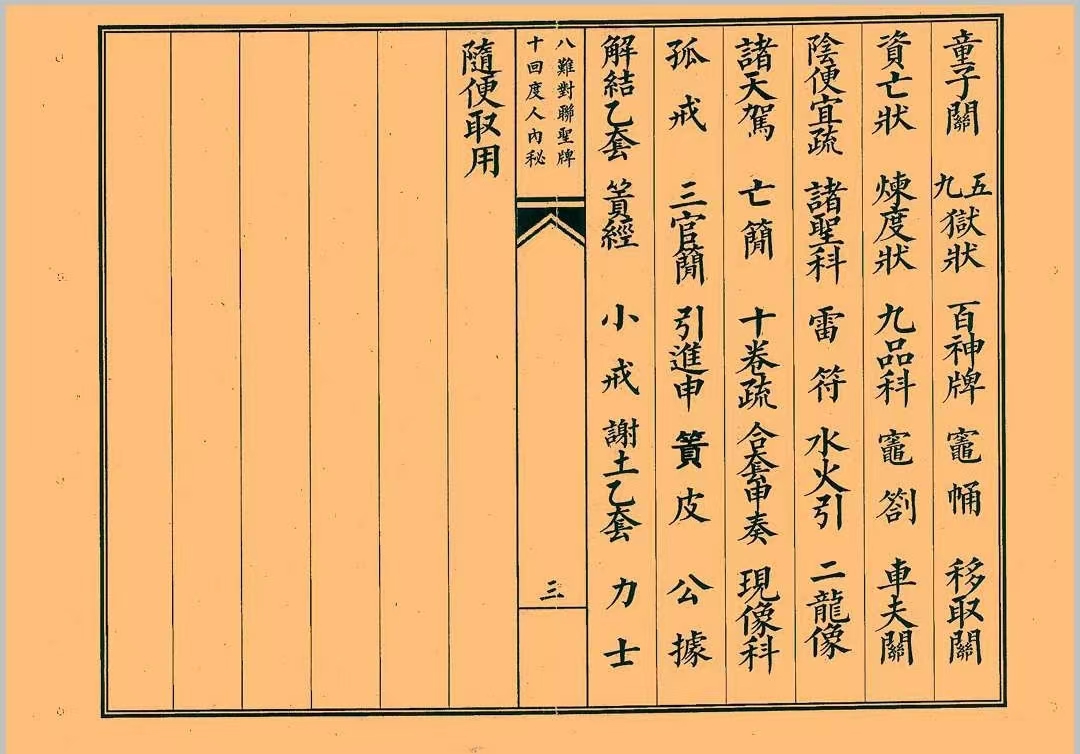 童子關 五九獄狀 百神牌 竈㡓 移取關
資亡狀 煉度狀 九品科 竈劄 車夫關
陰便宜疏 諸聖科 雷符 水火引 二龍像
諸天駕 亡簡 十卷疏 合套申奏 現像科
孤戒 三官簡 引進申 簀皮 公據
解結乙套 簀經 小戒 謝土乙套 力士
八難對聯聖牌
十回度人內秘
三
隨便取用